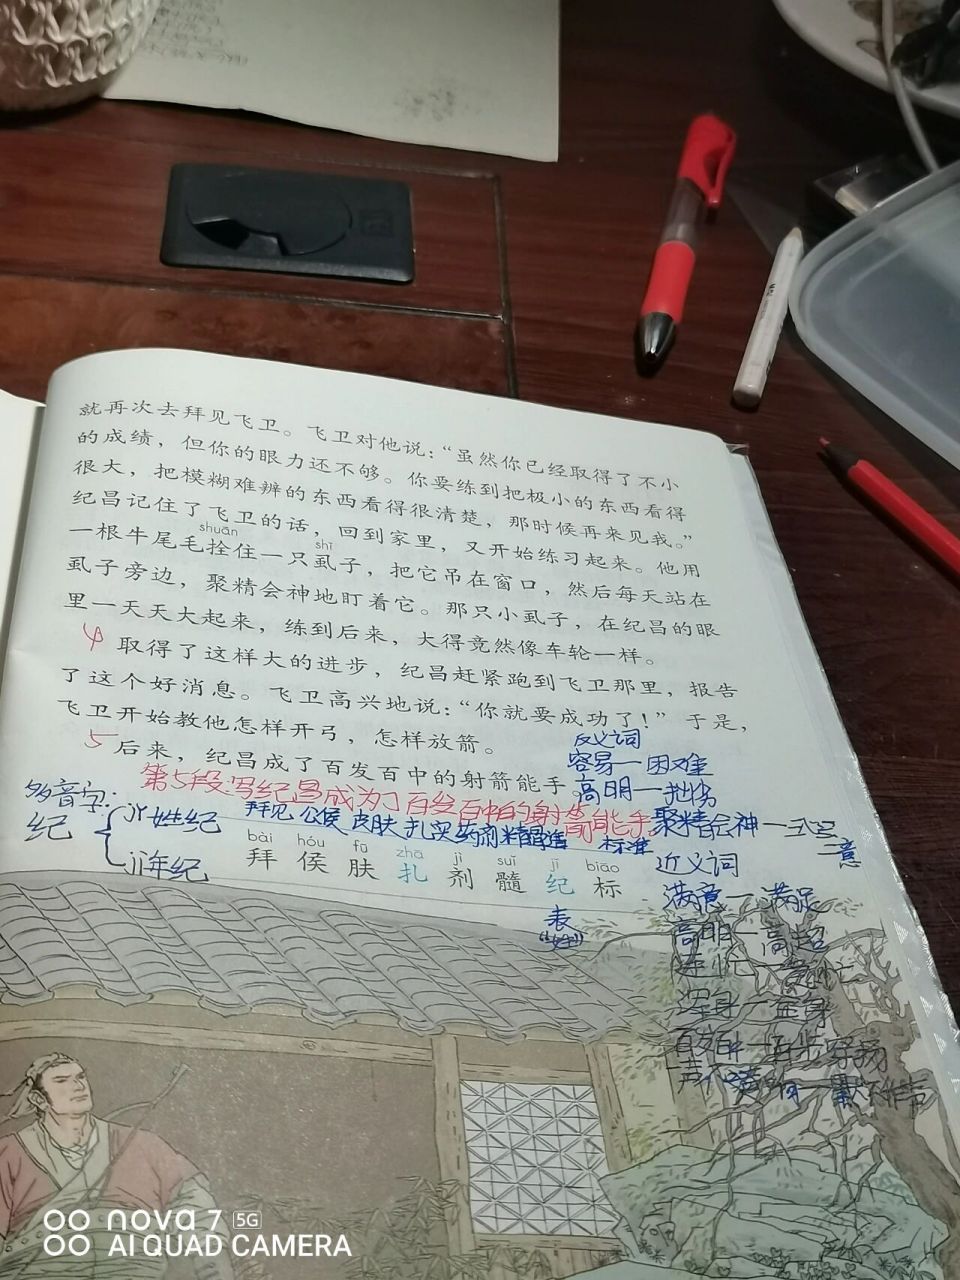 就再次去拜见飞卫。飞卫对他说：“虽然你已经取得了不小
的成绩，但你的眼力还不够。你要练到把极小的东西看得
很大，把模糊难辨的东西看得很清楚，那时候再来见我。”
纪昌记住了飞卫的话，回到家里，又开始练习起来。他用
shuān
shī
一根牛尾毛拴住一只虱子，把它吊在窗口，然后每天站在
虱子旁边，聚精会神地盯着它。那只小虱子，在纪昌的眼
里一天天大起来，练到后来，大得竟然像车轮一样。
4
取得了这样大的进步，纪昌赶紧跑到飞卫那里，报告
了这个好消息。飞卫高兴地说：“你就要成功了！”于是，
飞卫开始教他怎样开弓，怎样放箭。
5
后来，纪昌成了百发百中的射箭能手。
第5段写纪昌成为了百发百中的射箭能手
反义词
容易—困难
高明—拙劣
聚精会神—三心
二意
多音字：
纪
jǐ姓纪
jì年纪
拜见 公侯 皮肤 扎实 药剂 精髓
标准
bài hóu fū zhā jì suǐ jǐ biāo
拜 侯 肤 扎 剂 髓 纪 标
表
近义词
满意—满足
高明—高超
连忙—急忙
浑身—全身
百发百中—百步穿杨